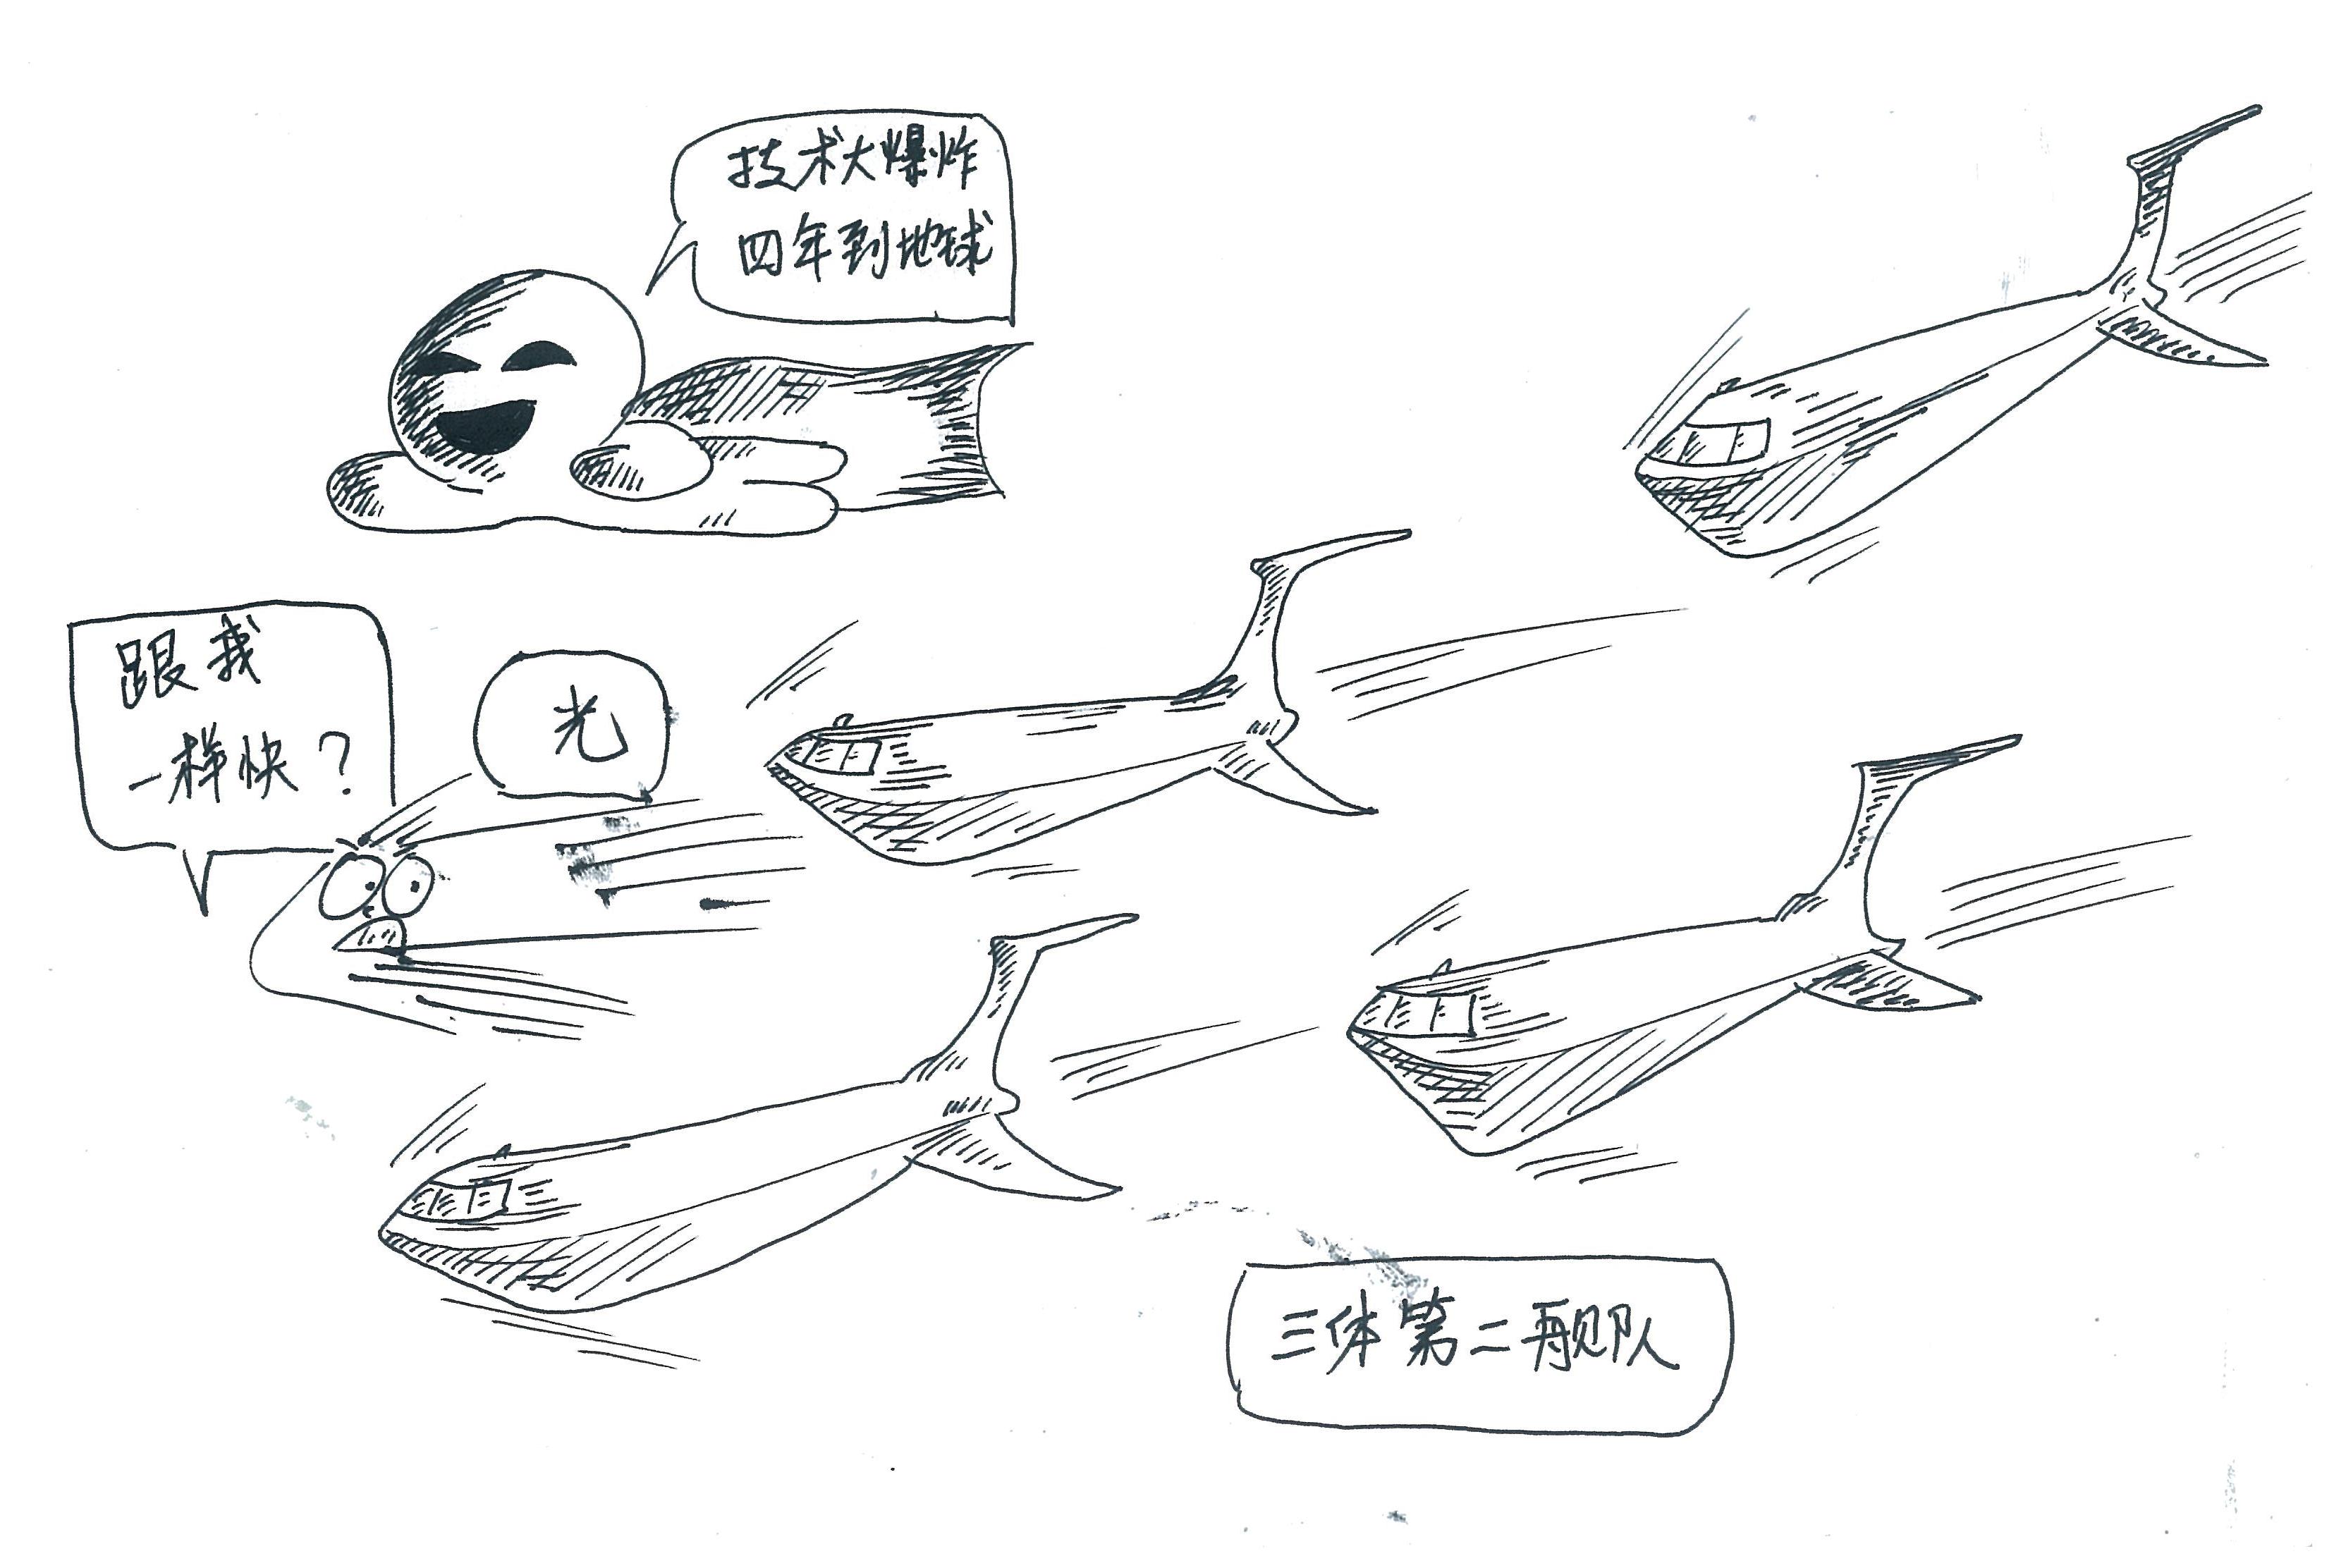 技术大爆炸
四年到地球
跟我
一样快？
光
三体第二舰队